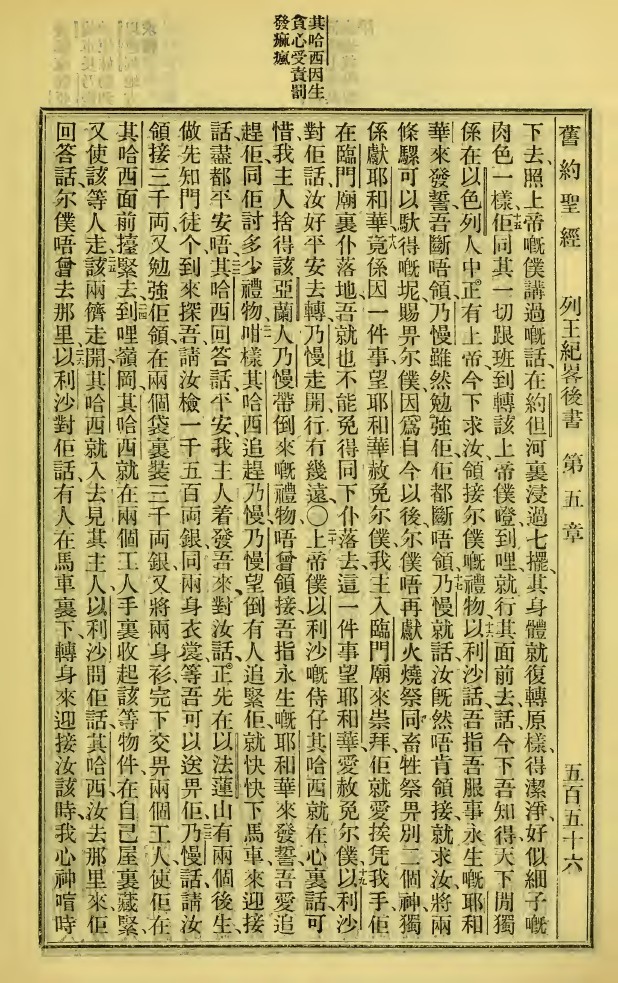 其哈西因生
貪心受責罰
發瘋瘋
舊約聖經 列王紀畧後書 第五章 五百五十六
下去、照上帝嘅僕講過嘅話、在約但河裏浸過七擺、其身體就復轉原樣、得潔淨、好似細子嘅
肉色一樣、佢同其一切跟班到轉該上帝僕嶝到哩、就行其面前去、話、今下吾知得天下閒、獨
係在以色列人中正有上帝、今下求汝領接尔僕嘅禮物、以利沙話、吾指吾服事永生嘅耶和
華來發誓、吾斷唔領、乃慢雖然勉強佢、佢都斷唔領、乃慢就話、汝旣然唔肯領接、就求汝將兩
條騾可以馱得嘅坭賜畀尔僕、因爲自今以後、尔僕唔再獻火燒祭同畜牲祭畀別二個神、獨
係獻耶和華、竟係因一件事望耶和華赦免尔僕、我主入臨門廟來崇拜、佢就愛挨凭我手、佢
在臨門廟裏仆落地、吾就也不能免得同下仆落去、這一件事望耶和華愛赦免尔僕、以利沙
對佢話、汝好平安去轉、乃慢走開、行有幾遠、〇上帝僕以利沙嘅侍仔其哈西就在心裏話、可
惜我主人捨得該亞蘭人乃慢帶倒來嘅禮物、唔曾領接、吾指永生嘅耶和華來發誓、吾愛追
趕佢、同佢討多少禮物、咁樣其哈西追趕乃慢、乃慢望倒有人追緊佢、就快快下馬車來迎接
話、盡都平安唔、其哈西回答話、平安、我主人着發吾來、對汝話、正先在以法蓮山有兩個後生、
做先知門徒个、到來探吾、請汝檢一千五百両銀、同兩身衣裳等吾可以送畀佢、乃慢話、請汝
領接三千両、又勉強佢領、在兩個袋裏裝三千両銀、又將兩身衫、完下交畀兩個工人、使佢在
其哈西面前擡緊去、到哩嶺岡、其哈西就在兩個工人手裏收起該等物件、在自己屋裏藏緊、
又使該等人走、該兩儕走開、其哈西就入去見其主人、以利沙問佢話、其哈西汝去那里來、佢
回答話、尔僕唔曾去那里、以利沙對佢話、有人在馬車裏下、轉身來迎接汝該時、我心神喧時